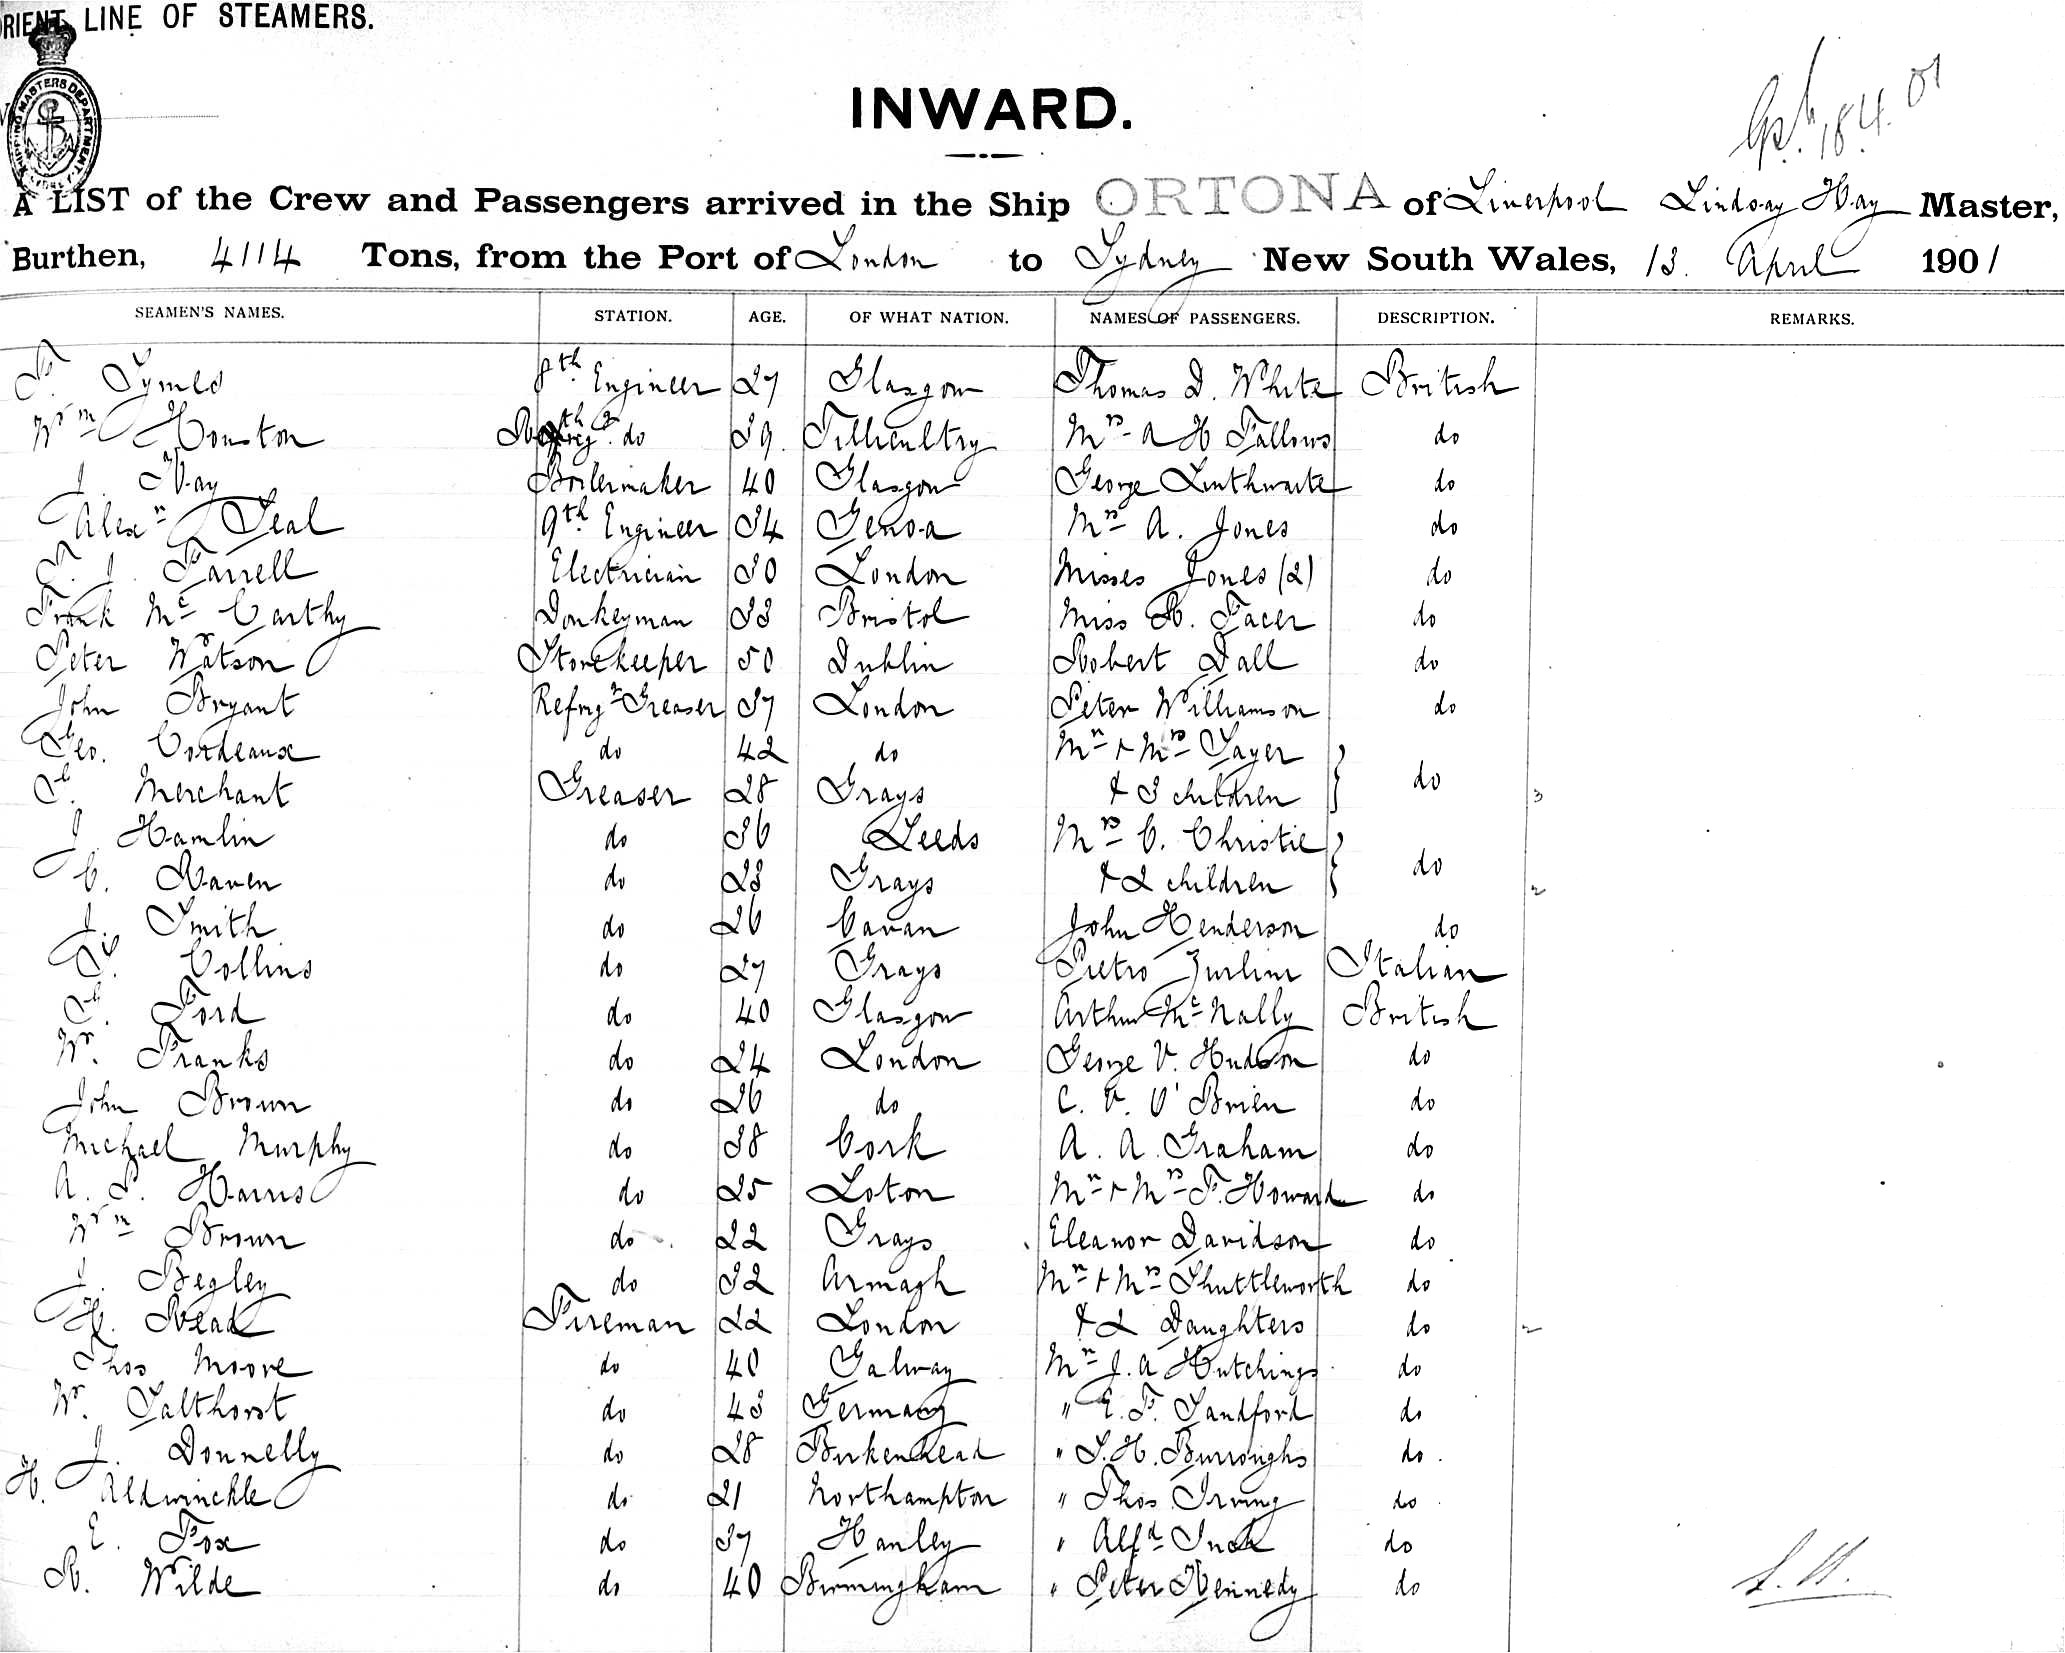 ORIENT LINE OF STEAMERS.
SHIPPING MASTERS DEPARTMENT SYDNEY
18.4.01
INWARD.
A LIST of the Crew and Passengers arrived in the Ship ORTONA of Liverpool Lindsay Hay Master,
Burthen, 4114 Tons, from the Port of London to Sydney New South Wales, 13. April 1901
SEAMEN'S NAMES. STATION. AGE. OF WHAT NATION. NAMES OF PASSENGERS. DESCRIPTION. REMARKS.
F. Symes 8th Engineer 27 Glasgow Thomas D. White British
Wm Houston Refrigr do 39. Tillicultry Mrs A H Fallows do
J. Hay Boilermaker 40 Glasgow George Linthwaite do
Alexr Seal 9th Engineer 34 Genoa Mrs A. Jones do
J. Farrell Electrician 30 London Misses Jones (2) do
Frank Mc Carthy Donkeyman 33 Bristol Miss R. Facer do
Peter Watson Storekeeper 50 Dublin Robert Dall do
John Bryant Refrigr Greaser 37 London Peter Williamson do
Geo. Cordeaux do 42 do Mr & Mrs Sayer
G. Merchant Greaser 28 Grays & 3 children do 3
J. Hamlin do 36 Leeds Mrs C. Christie
C. Raven do 23 Grays & 2 children do 2
J. Smith do 26 Cavan John Henderson do
Collins do 27 Grays Pietro Zurlini Italian
G. Ford do 40 Glasgow Arthur Mc Nally British
W. Franks do 24 London George V. Hudson do
John Brown do 26 do C. V. O'Brien do
Michael Murphy do 38 Cork A. A. Graham do
A. P. Harris do 25 Loton Mr & Mrs F. Howard do
Wm Brown do 22 Grays Eleanor Davidson do
J. Begley do 32 Armagh Mr & Mrs Shuttleworth do
H. Read Fireman 22 London & 2 Daughters do 2
Thos Moore do 40 Galway Mr J. A Hutchings do
W. Salthorst do 43 Germany " E. F. Sandford do
J. Donnelly do 28 Birkenhead " S. H. Burroughs do.
H. Aldwinckle do 21 Northampton " Thos Irving do
E. Fox do 37 Hanley " Alfd Inch do
R. Wilde do 40 Birmingham " Peter Kennedy do